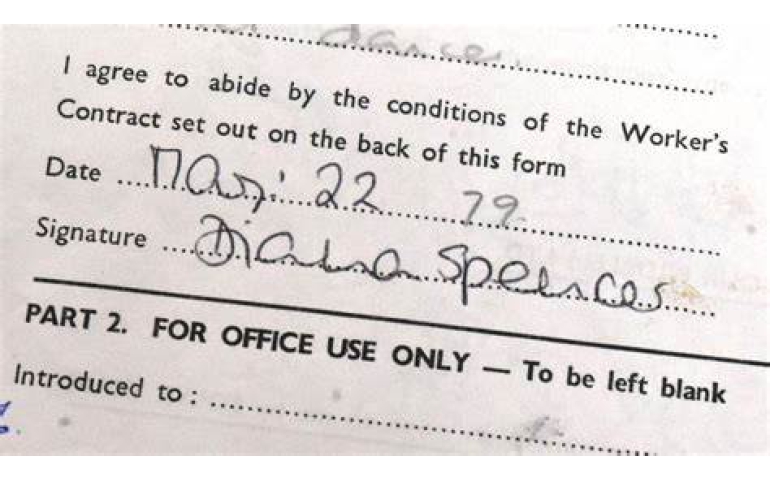 dancer.
I agree to abide by the conditions of the Worker's
Contract set out on the back of this form
Date May 22 79
Signature Diana Spencer
PART 2. FOR OFFICE USE ONLY — To be left blank
Introduced to :